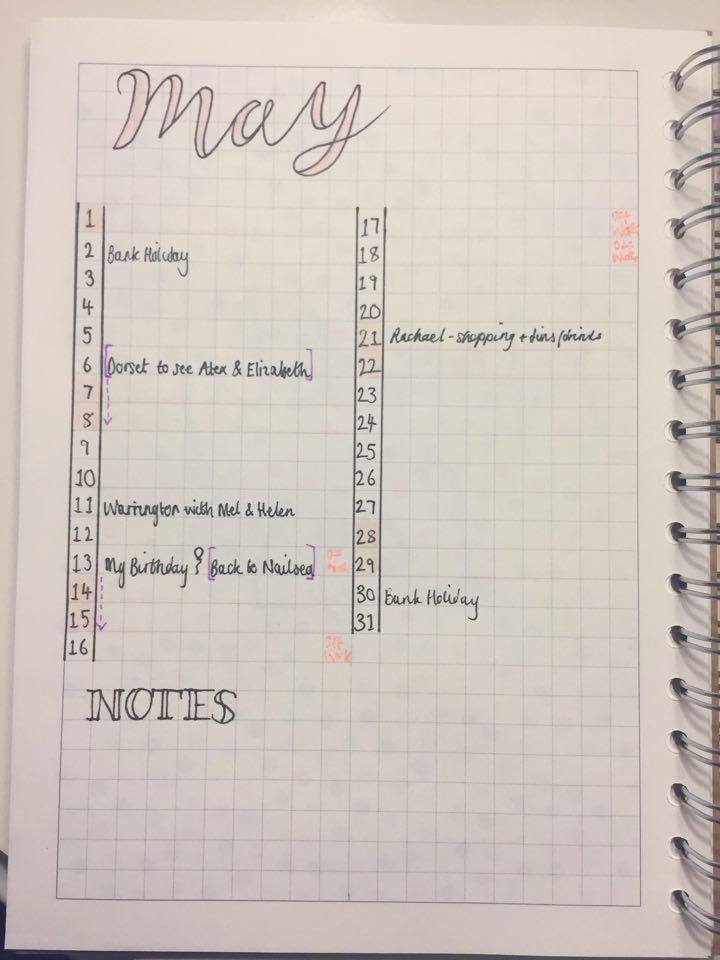 May
1
2 Bank Holiday
3
4
5
6 [Dorset to see Alex & Elizabeth]
7
8
9
10
11 Warrington with Mel & Helen
12
13 My Birthday [Back to Nailsea] Off Work
14
15
16 Off Work
17 Off Work
18 Off Work
19
20
21 Rachael - shopping + dins/drinks
22
23
24
25
26
27
28
29
30 Bank Holiday
31
NOTES